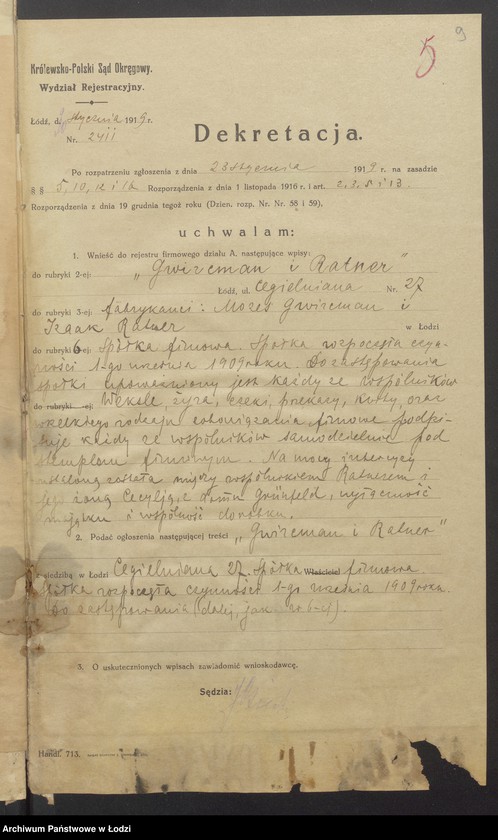 9
5
Królewsko-Polski Sąd Okręgowy.
Wydział Rejestracyjny.
Łódź, d. stycznia 1919 r.
Nr. 2411
Dekretacja.
Po rozpatrzeniu zgłoszenia z dnia 23 stycznia 1919 r. na zasadzie
§ § 5, 10, 12 i 16 Rozporządzenia z dnia 1 listopada 1916 r. i art. 2, 3, 5 i 13.
Rozporządzenia z dnia 19 grudnia tegoż roku (Dzien. rozp. Nr. Nr. 58 i 59),
uchwalam:
1. Wnieść do rejestru firmowego działu A. następujące wpisy:
do rubryki 2-ej: „Gwircman i Ratner”
Łódź, ul. Cegielniana Nr. 27
do rubryki 3-ej: fabrykanci: Mozes Gwircman i
Izaak Ratner w Łodzi
do rubryki 6-ej: Spółka firmowa. Spółka rozpoczęła czyn-
ności 1-go września 1909 roku. Do zastępowania
spółki upoważniony jest każdy ze wspólników
do rubryki -ej: Weksle, żyra, czeki, przekazy, kwity, oraz
wszelkiego rodzaju zobowiązania firmowe podpi-
suje każdy ze wspólników samodzielnie pod
stemplem firmowym. Na mocy intercyzy
ustaloną została między wspólnikiem Ratnerem i
jego żoną Cecylją, z domu Grünfeld, wyłączność
majątku i wspólność dorobku.
2. Podać ogłoszenia następującej treści „Gwircman i Ratner”
z siedzibą w Łodzi Cegielniana 27. Spółka Właściciel firmowa.
Spółka rozpoczęła czynności 1-go września 1909 roku.
Do zastępowania (dalej, jak w 6-ej).
3. O uskutecznionych wpisach zawiadomić wnioskodawcę.
Sędzia:
Handl. 713.
Archiwum Państwowe w Łodzi